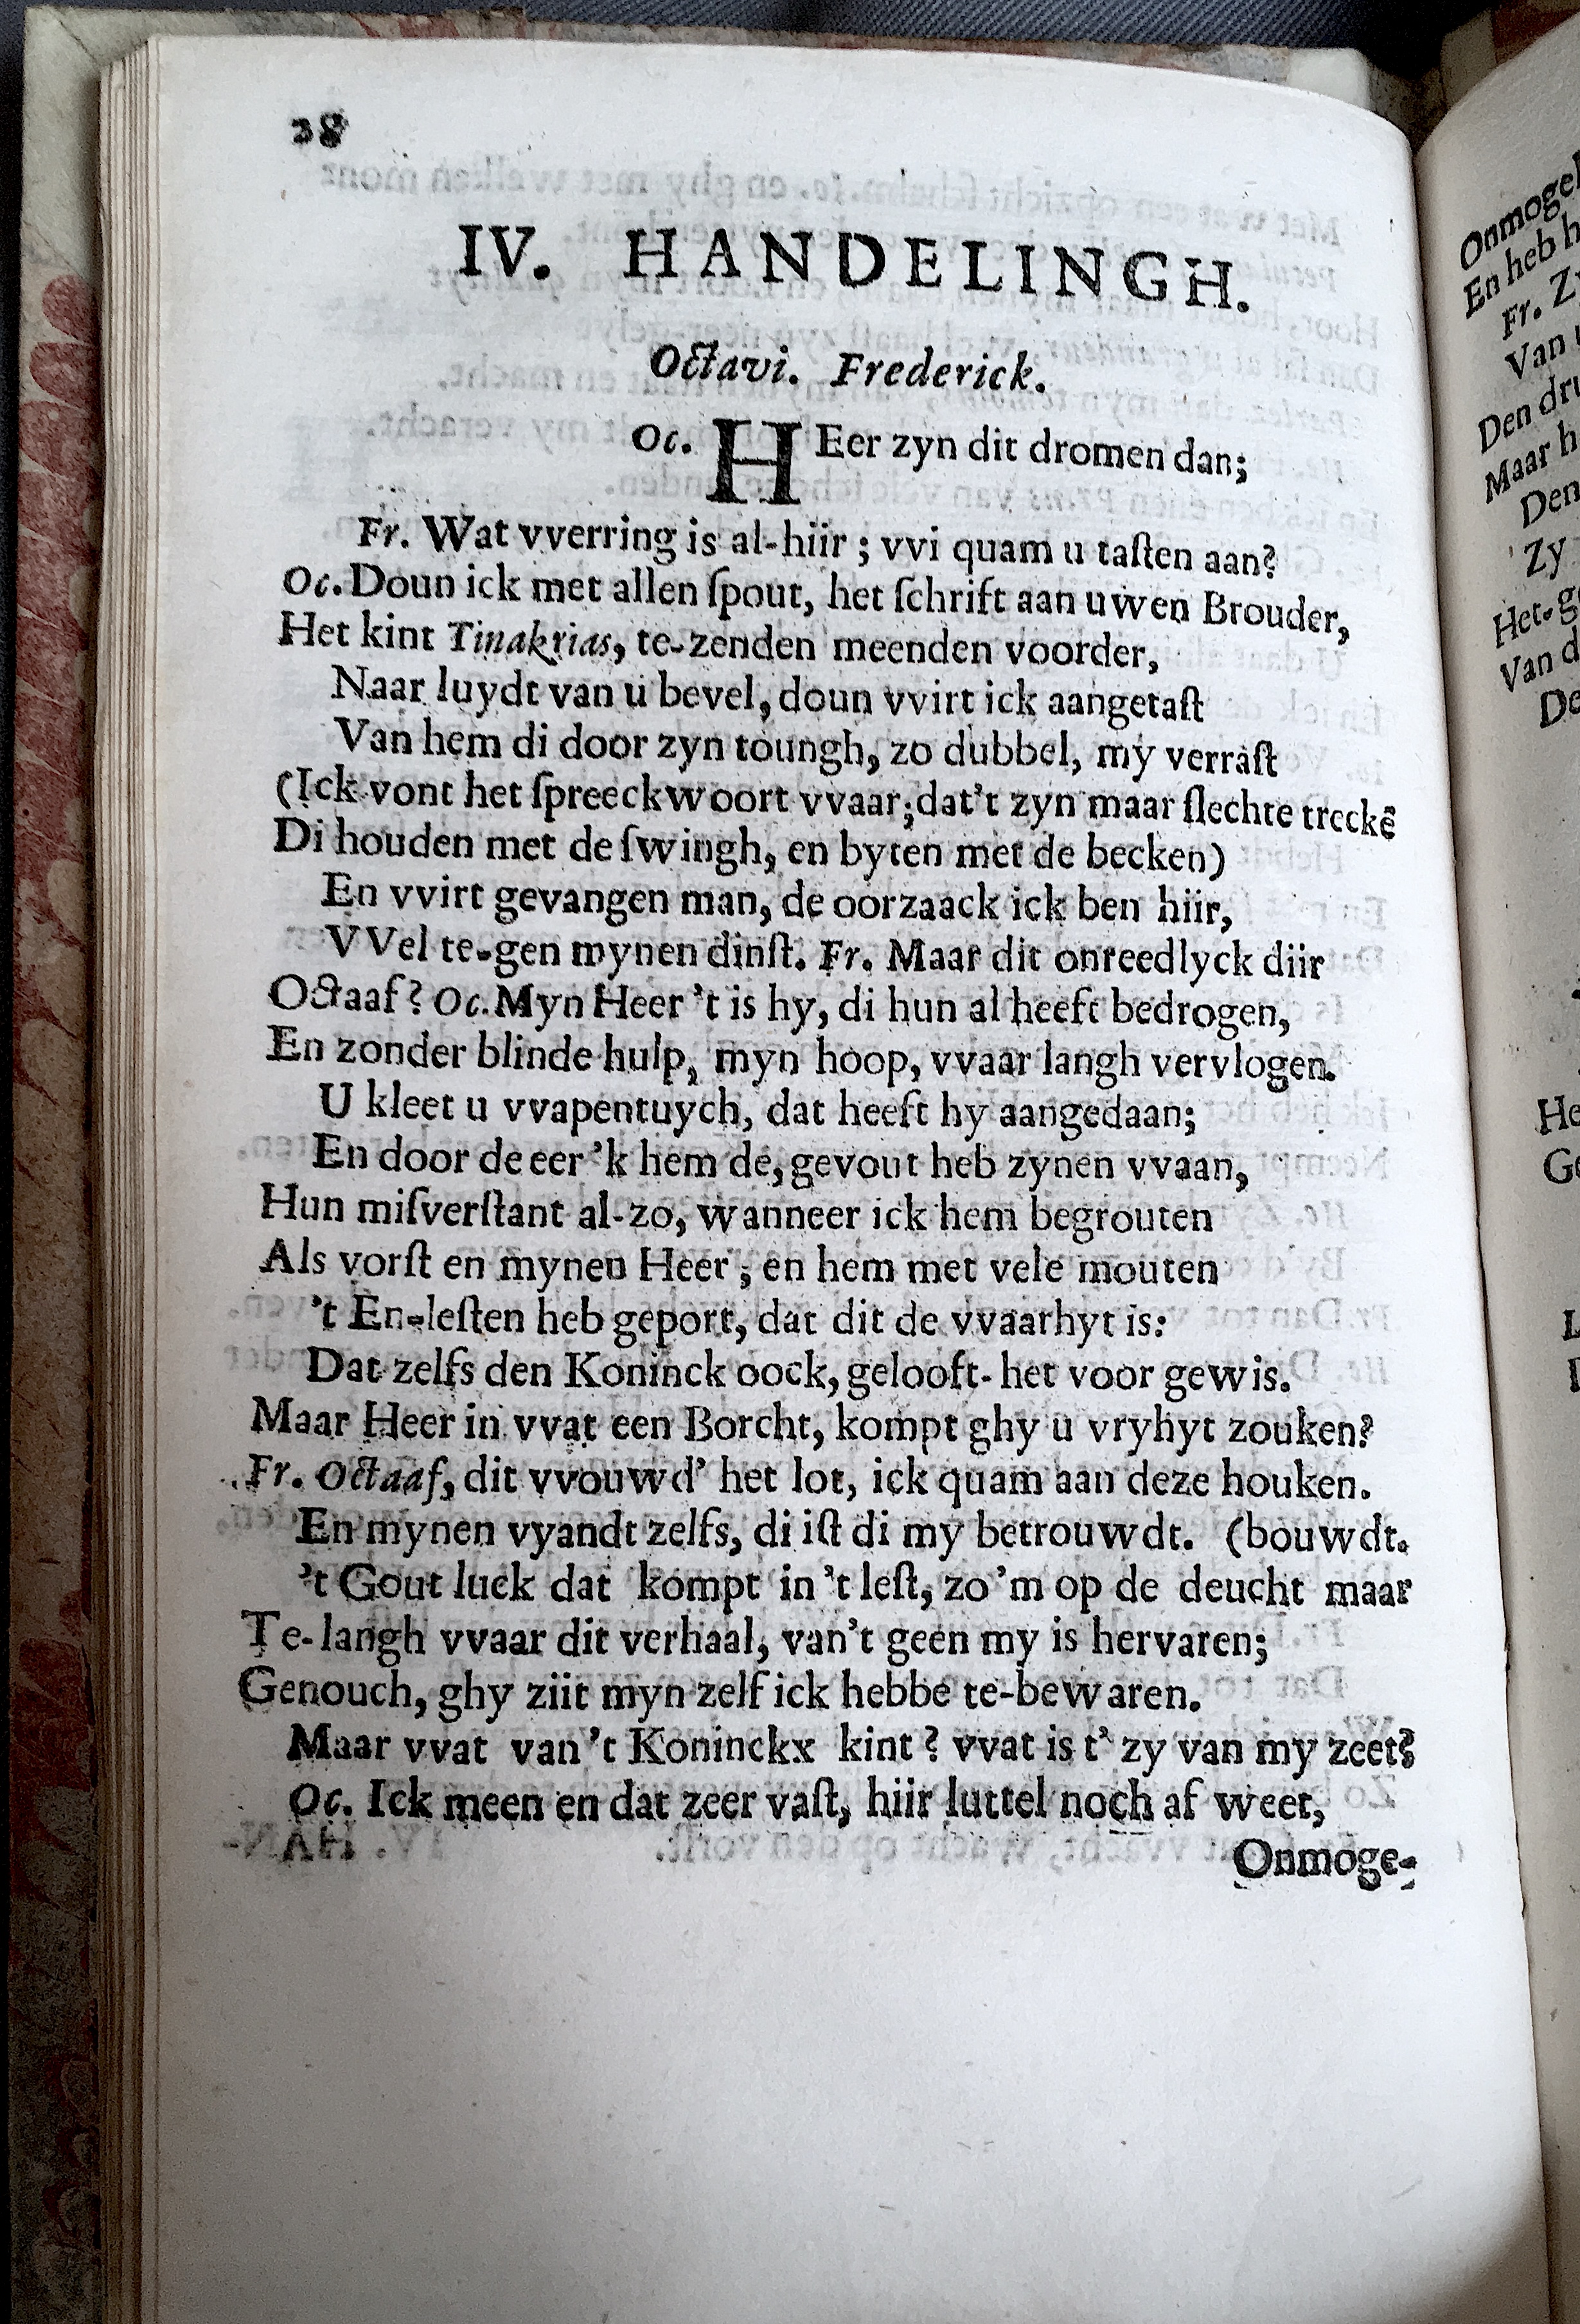 28
IV. HANDELINGH.
Octavi. Frederick.
Oc. HEer zyn dit dromen dan;
Fr. Wat vverring is al-hiir ; vvi quam u taſten aan?
Oc. Doun ick met allen ſpout, het ſchrift aan uwen Brouder,
Het kint Tinakrias, te-zenden meenden voorder,
Naar luydt van u bevel, doun vvirt ick aangetaſt
Van hem di door zyn toungh, zo dubbel, my verraſt
(Ick vont het ſpreeckwoort vvaar; dat't zyn maar ſlechte treckē
Di houden met de ſwingh, en byten met de becken)
En vvirt gevangen man, de oorzaack ick ben hiir,
VVel te-gen mynen dinſt. Fr. Maar dit onreedlyck diir
Octaaf? Oc. Myn Heer 't is hy, di hun al heeft bedrogen,
En zonder blinde hulp, myn hoop, vvaar langh vervlogen.
U kleet u vvapentuych, dat heeft hy aangedaan;
En door de eer 'k hem de, gevout heb zynen vvaan,
Hun miſverſtant al-zo, wanneer ick hem begrouten
Als vorſt en mynen Heer ; en hem met vele mouten
't En-leſten heb geport, dat dit de vvaarhyt is:
Dat zelfs den Koninck oock, gelooft-het voor gewis.
Maar Heer in vvat een Borcht, kompt ghy u vryhyt zouken?
Fr. Octaaf, dit vvouwd' het lot, ick quam aan deze houken.
En mynen vyandt zelfs, di iſt di my betrouwdt. (bouwdt.
't Gout luck dat kompt in 't leſt, zo 'm op de deucht maar
Te-langh vvaar dit verhaal, van't geen my is hervaren;
Genouch, ghy ziit myn zelf ick hebbe te-bewaren.
Maar vvat van 't Koninckx kint? vvat is t' zy van my zeet?
Oc. Ick meen en dat zeer vaſt, hiir luttel noch af weet,
Onmoge-
Onmogel
En heb h
Fr. Z
Van
Den dru
Maar h
Den
Zy
Het-g
Van d
De
He